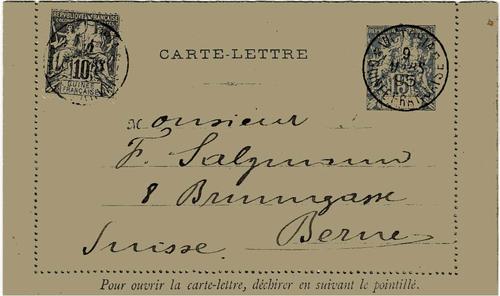 RÉPUBLIQUE FRANÇAISE
10
GUINÉE
FRANÇAISE
CARTE-LETTRE
9
MARS
95
15
GUINÉE FRANÇAISE
Monsieur
F.
8 Brunngasse
Berne
Suisse.
Pour ouvrir la carte-lettre, déchirer en suivant le pointillé.